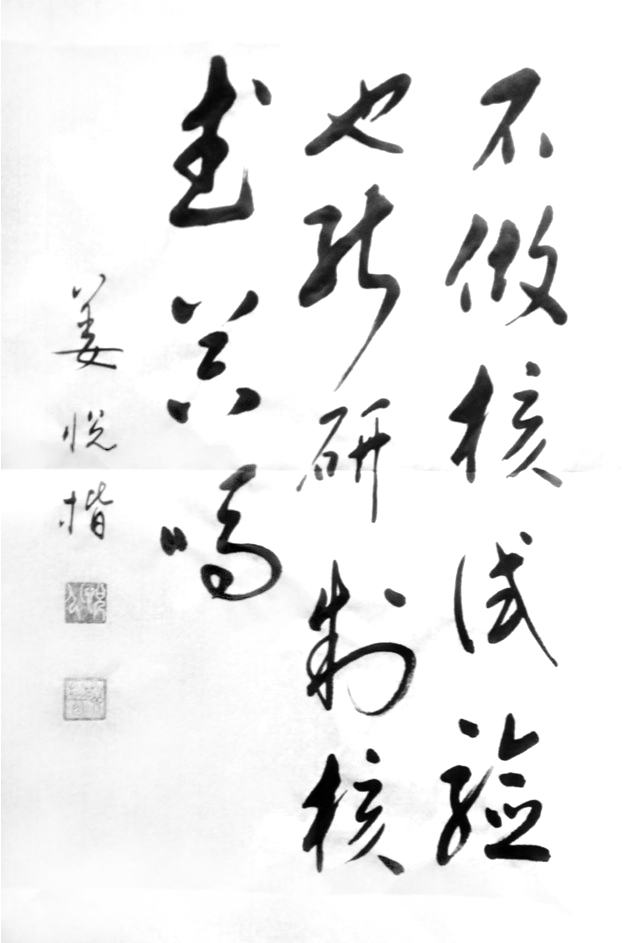 不做核试验
也能研制核
武器吗
姜悦楷